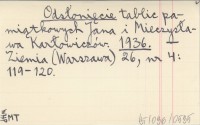 Odsłonięcie tablic pa-
miątkowych Jana i Mieczysła-
wa Karłowiczów. 1936.
Ziemia (Warszawa) 26, nr 4:
119-120.
EMT